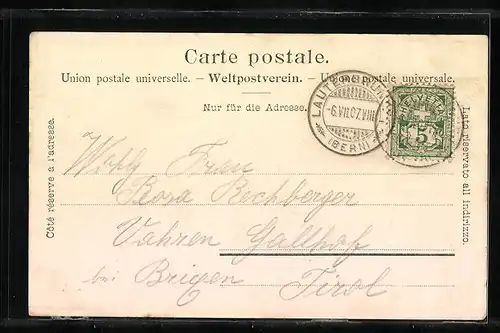 Carte postale.
Union postale universelle. – Weltpostverein. – Unione postale universale.
Nur für die Adresse.
Côté réservé à l'adresse.
Lato riservato all indirizzo.
LAUTERBRUNNEN
-6.VII.07.VIII
(BERN)
HELVETIA
5
Wohlg Frau
Rosa Rechberger
Vahren Gallhof
bei Brixen Tirol